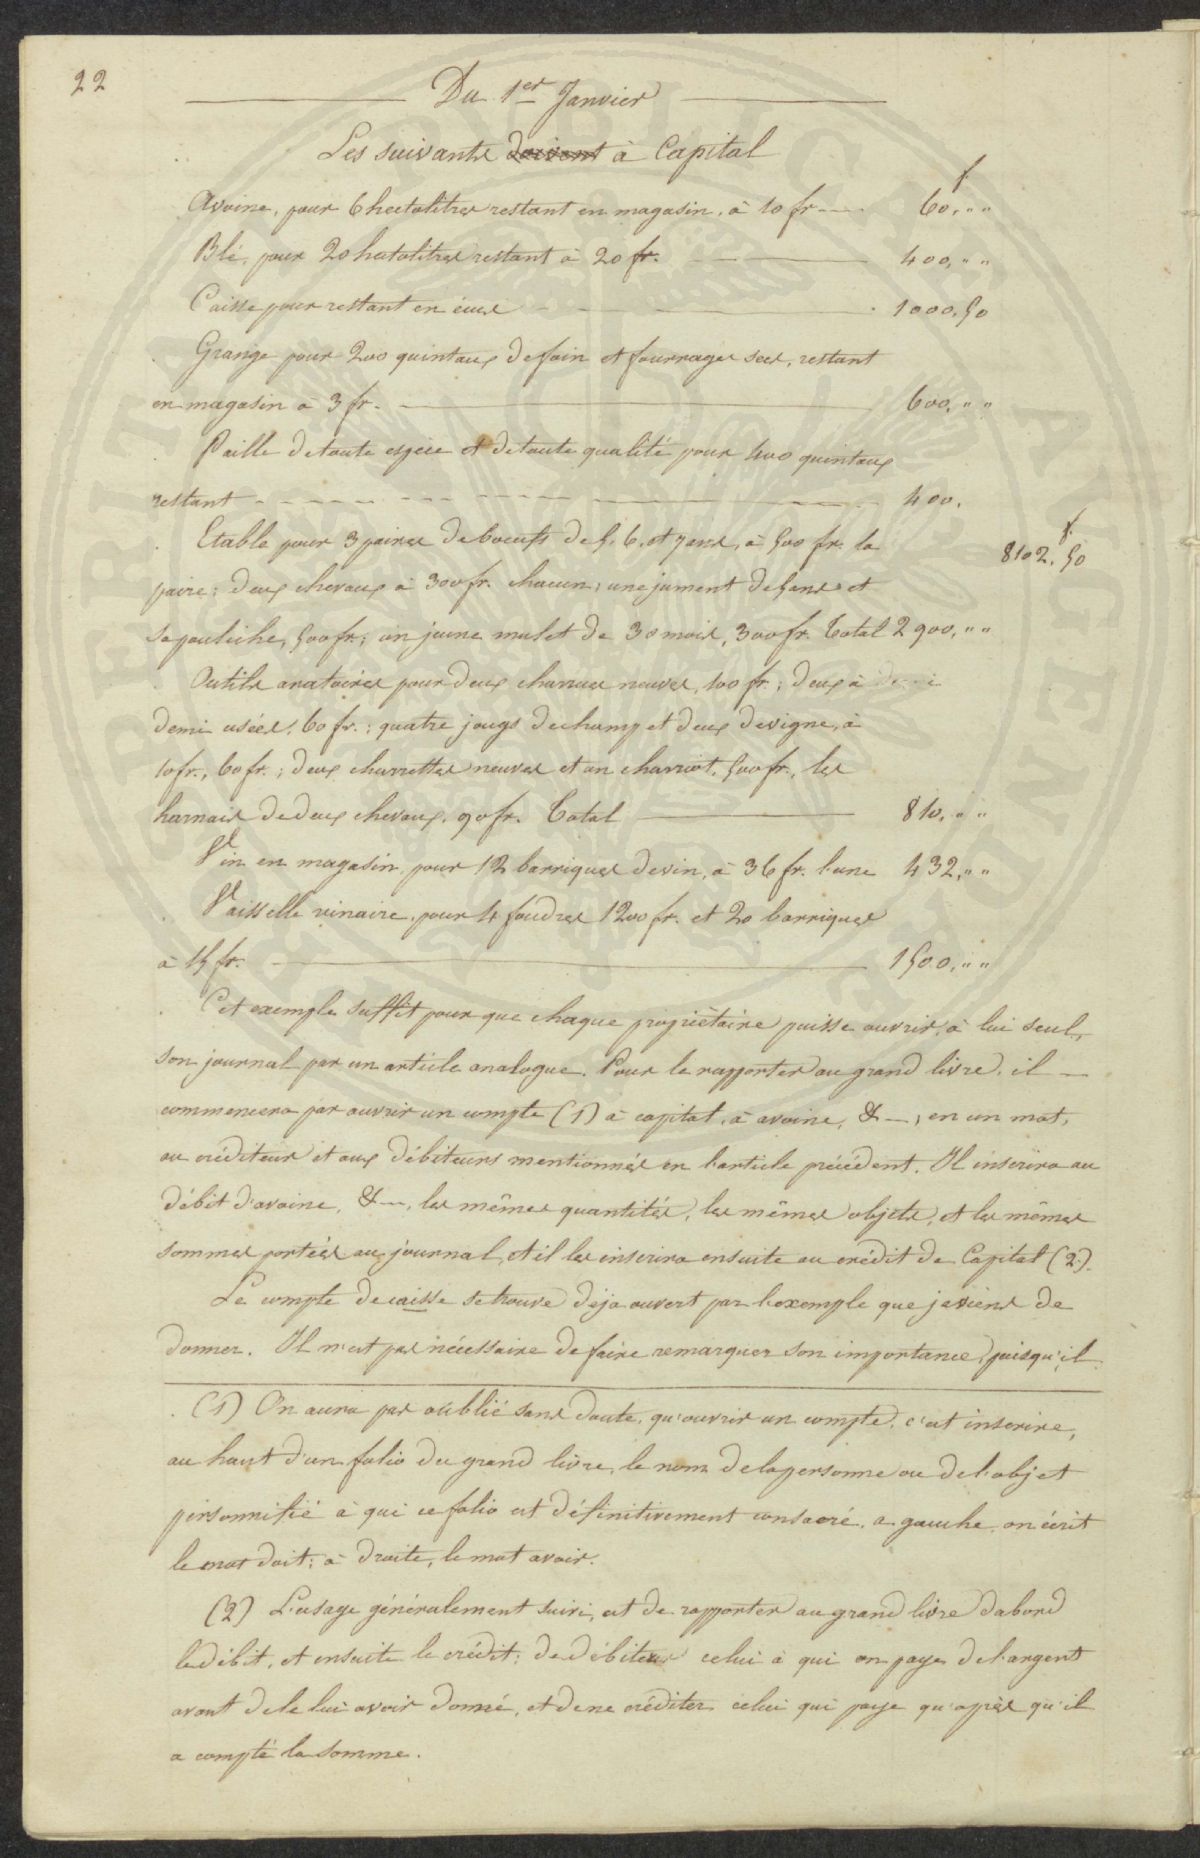 22
Du 1er Janvier
Les suivants doivent à Capital
f.
Avoine, pour 6 hectolitres restant en magasin, à 10 fr. 60, " "
Blé, pour 20 hectolitres restant à 20 fr. 400, " "
Caisse pour restant en écus 1000,50
Grange pour 200 quintaux de foin et fourrages secs, restant
en magasin à 3 fr. 600, " "
Paille de toute espèce et de toute qualité pour 400 quintaux
restant 400.
Etable pour 3 paires de boeufs de 5, 6, et 7 ans, à 500 fr. la
f.
8102,50
paire; deux chevaux à 300 fr. chacun; une jument de 5 ans et
sa pouliche, 500 fr.; un jeune mulet de 30 mois, 300 fr. Total 2900, " "
Outils aratoires pour deux charrues neuves, 100 fr.; deux à demi
demi usées, 60 fr.; quatre jougs de champ et deux de vigne, à
10 fr., 60 fr.; deux charrettes neuves et un charriot, 500 fr., les
harnais de deux chevaux, 90 fr. Total 810, " "
Vin en magasin, pour 12 barriques de vin, à 36 fr. l'une 432, " "
Vaisselle vinaire, pour 4 foudres 1200 fr. et 20 barriques
à 15 fr. 1500, " "
Cet exemple suffit pour que chaque propriétaire puisse ouvrir, à lui seul,
son journal par un article analogue. Pour le rapporter au grand livre, il
commencera par ouvrir un compte (1) à capital, à avoine, &—, en un mot,
au créditeur et aux débiteurs mentionnés en l'article précédent. Il inscrira au
débit d'avoine, &—, les mêmes quantités, les mêmes objets, et les mêmes
sommes portées au journal, et il les inscrira ensuite au crédit de Capital (2).
Le compte de caisse se trouve déja ouvert par l'exemple que je viens de
donner. Il n'est pas nécessaire de faire remarquer son importance, puisqu'il
(1) On aura pas oublié sans doute, qu'ouvrir un compte, c'est inscrire,
au haut d'un folio du grand livre, le nom de la personne ou de l'objet
personnifié à qui ce folio est définitivement consacré. a gauche, on écrit
le mot doit; à droite, le mot avoir.
(2) L'usage généralement suivi, est de rapporter au grand livre d'abord
le débit, et ensuite le crédit; de débiter celui à qui on paye de l'argent
avant de le lui avoir donné, et de ne créditer celui qui paye qu'après qu'il
a compté la somme.